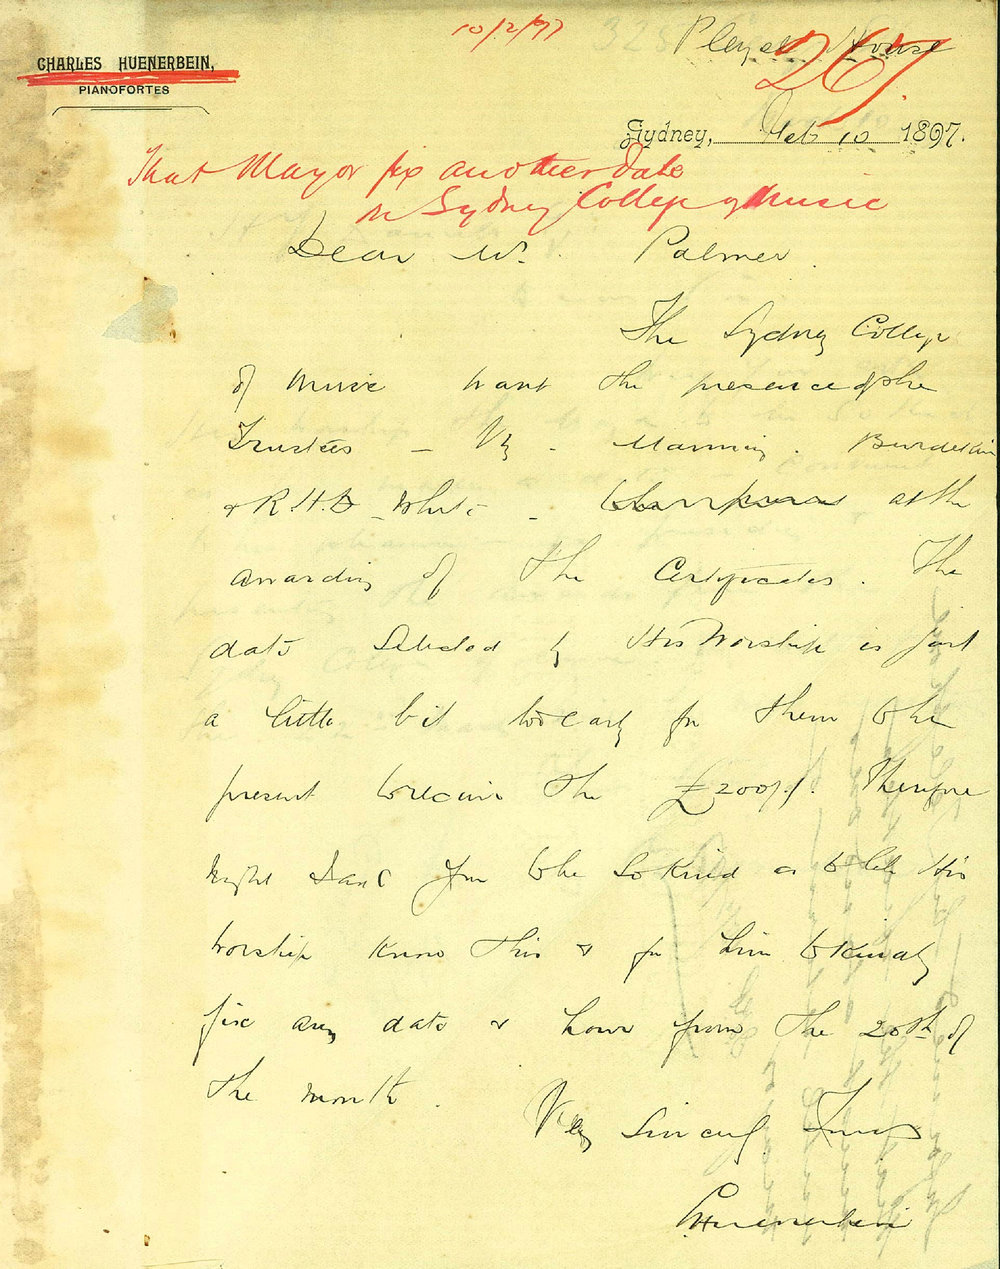 10/2/97
Pleyel House
267
CHARLES HUENERBEIN,
PIANOFORTES
Sydney, Feb 10 1897.
That Mayor fix another date
re Sydney College of Music
Dear Mr. Palmer.
The Sydney College
of Music want the presence of the
Trustees – Viz – Manning. Burdekin
& R.H.D – White – at the
awarding of the Certificates. The
date selected by His Worship is just
a little bit too early for them to be
present to receive the £200/./. Therefore
might I ask you to be so kind as to let His
Worship know this & for him to kindly
fix any date & hour from the 20th of
the month.
Very Sincerely Yours
CHuenerbein